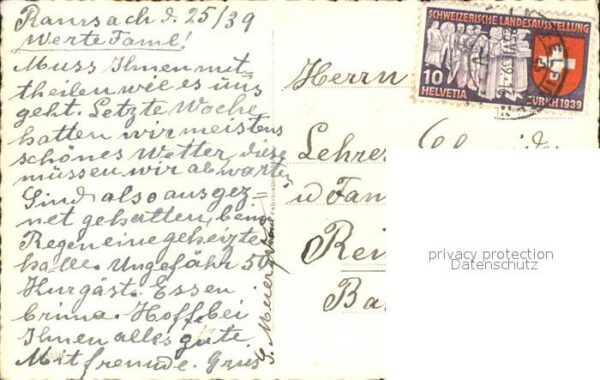 Ramsach d. 25/39
Werte Faml!
Muss Ihnen mit-
theilen wie es uns
geht. Letzte Woche
hatten wir meistens
schönes Wetter, diese
müssen wir abwarten
Sind also ausgez=
net gehalten, beim
Regen eine geheizte
halle. Ungefähr 50
Kurgäst. Essen
brima. Hoff bei
Ihnen alles gute.
Mit freunde. Grus
S. Meier
Herrn
Lehrer
u Fam
Rei
Ba
SCHWEIZERISCHE LANDESAUSSTELLUNG
10
HELVETIA
ZÜRICH 1939
privacy protection
Datenschutz